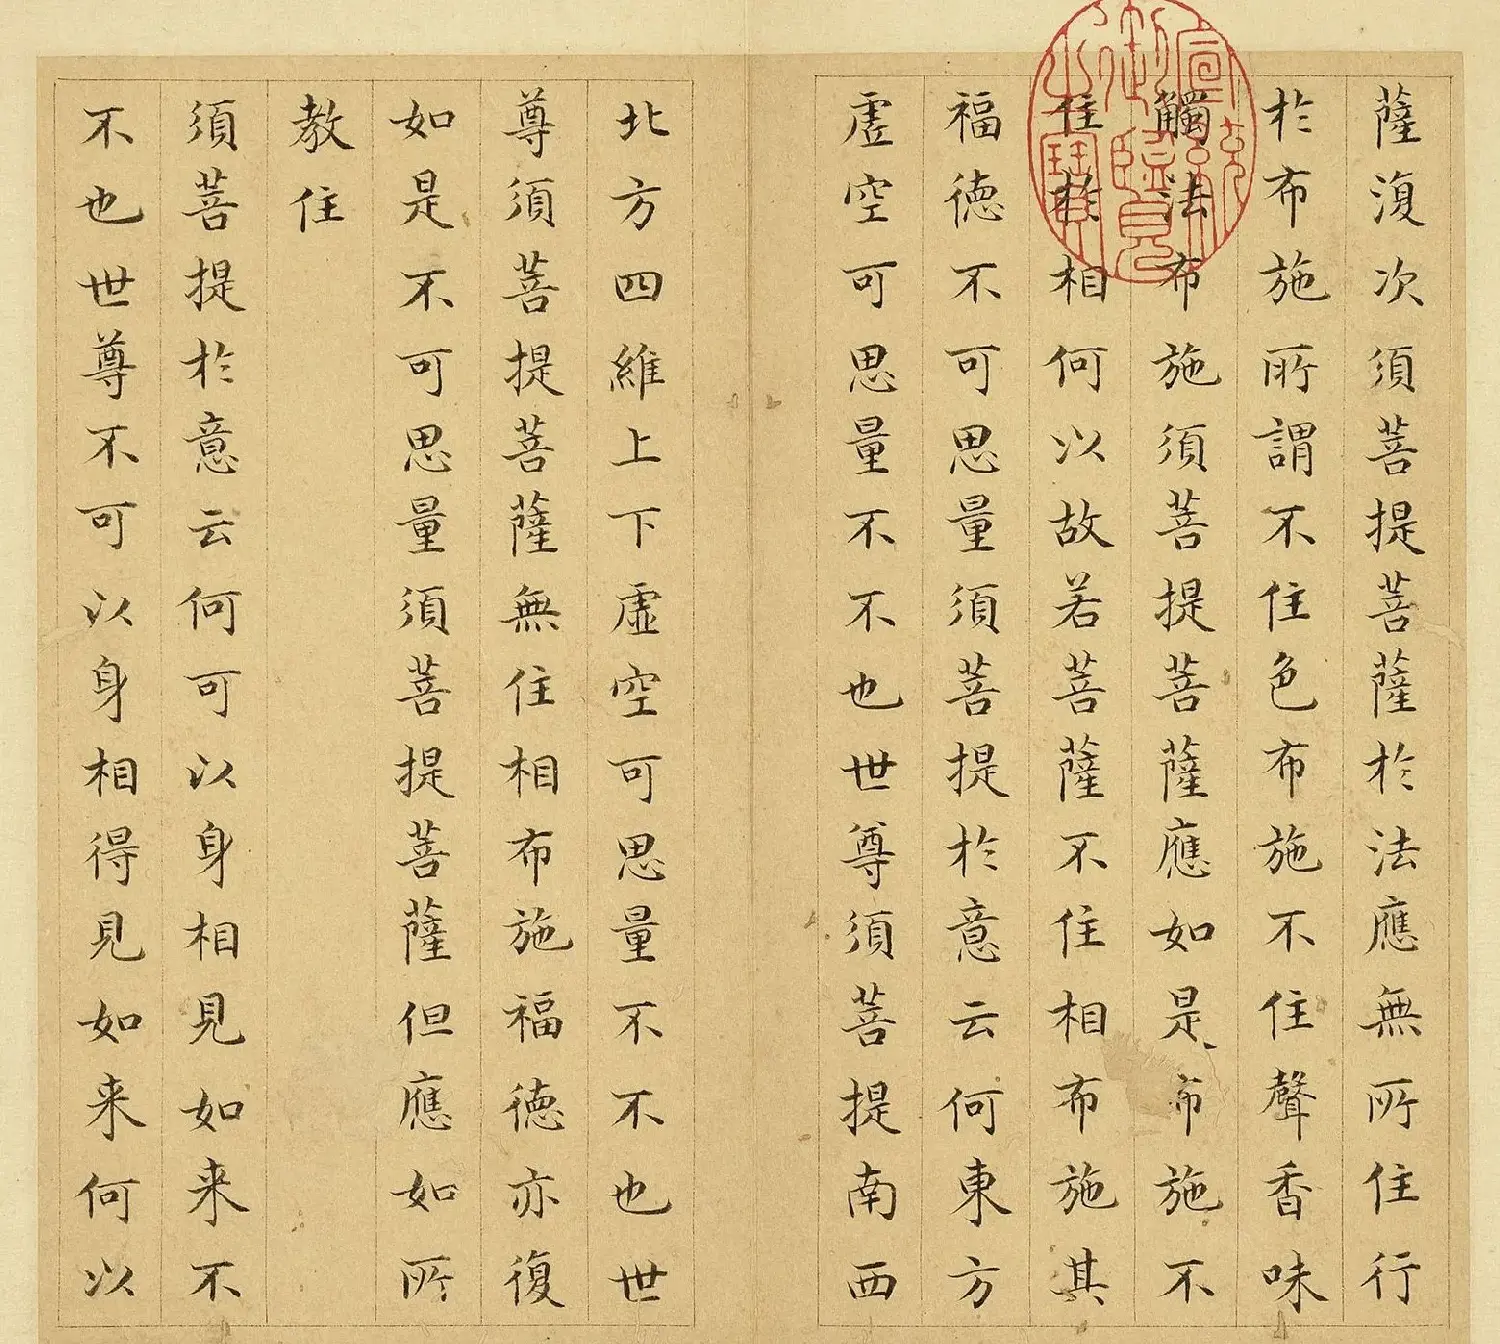 薩復次須菩提菩薩於法應無所住行
於布施所謂不住色布施不住聲香味
觸法布施須菩提菩薩應如是布施不
住於相何以故若菩薩不住相布施其
福德不可思量須菩提於意云何東方
虛空可思量不不也世尊須菩提南西
北方四維上下虛空可思量不不也世
尊須菩提菩薩無住相布施福德亦復
如是不可思量須菩提菩薩但應如所
教住
須菩提於意云何可以身相見如来不
不也世尊不可以身相得見如来何以
宣統
御覽
之寶